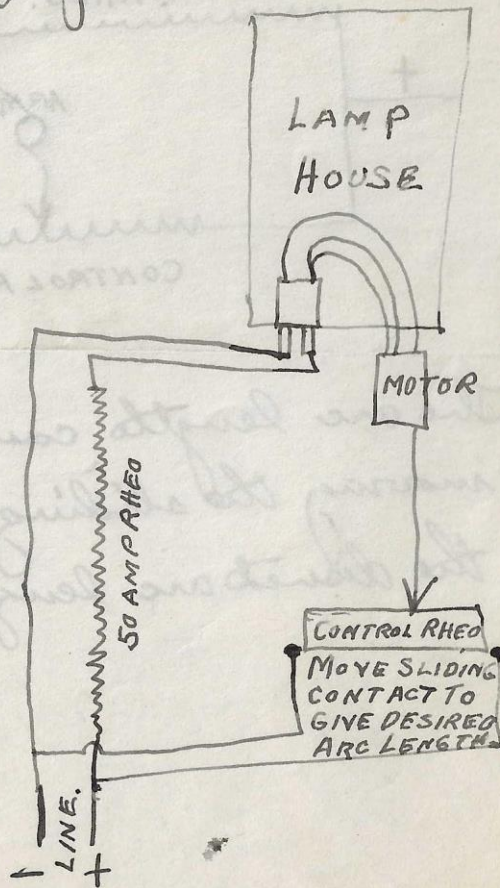 LAMP
HOUSE
MOTOR
50 AMP RHEO
CONTROL RHEO
MOVE SLIDING
CONTACT TO
GIVE DESIRED
ARC LENGTH.
LINE.
- +